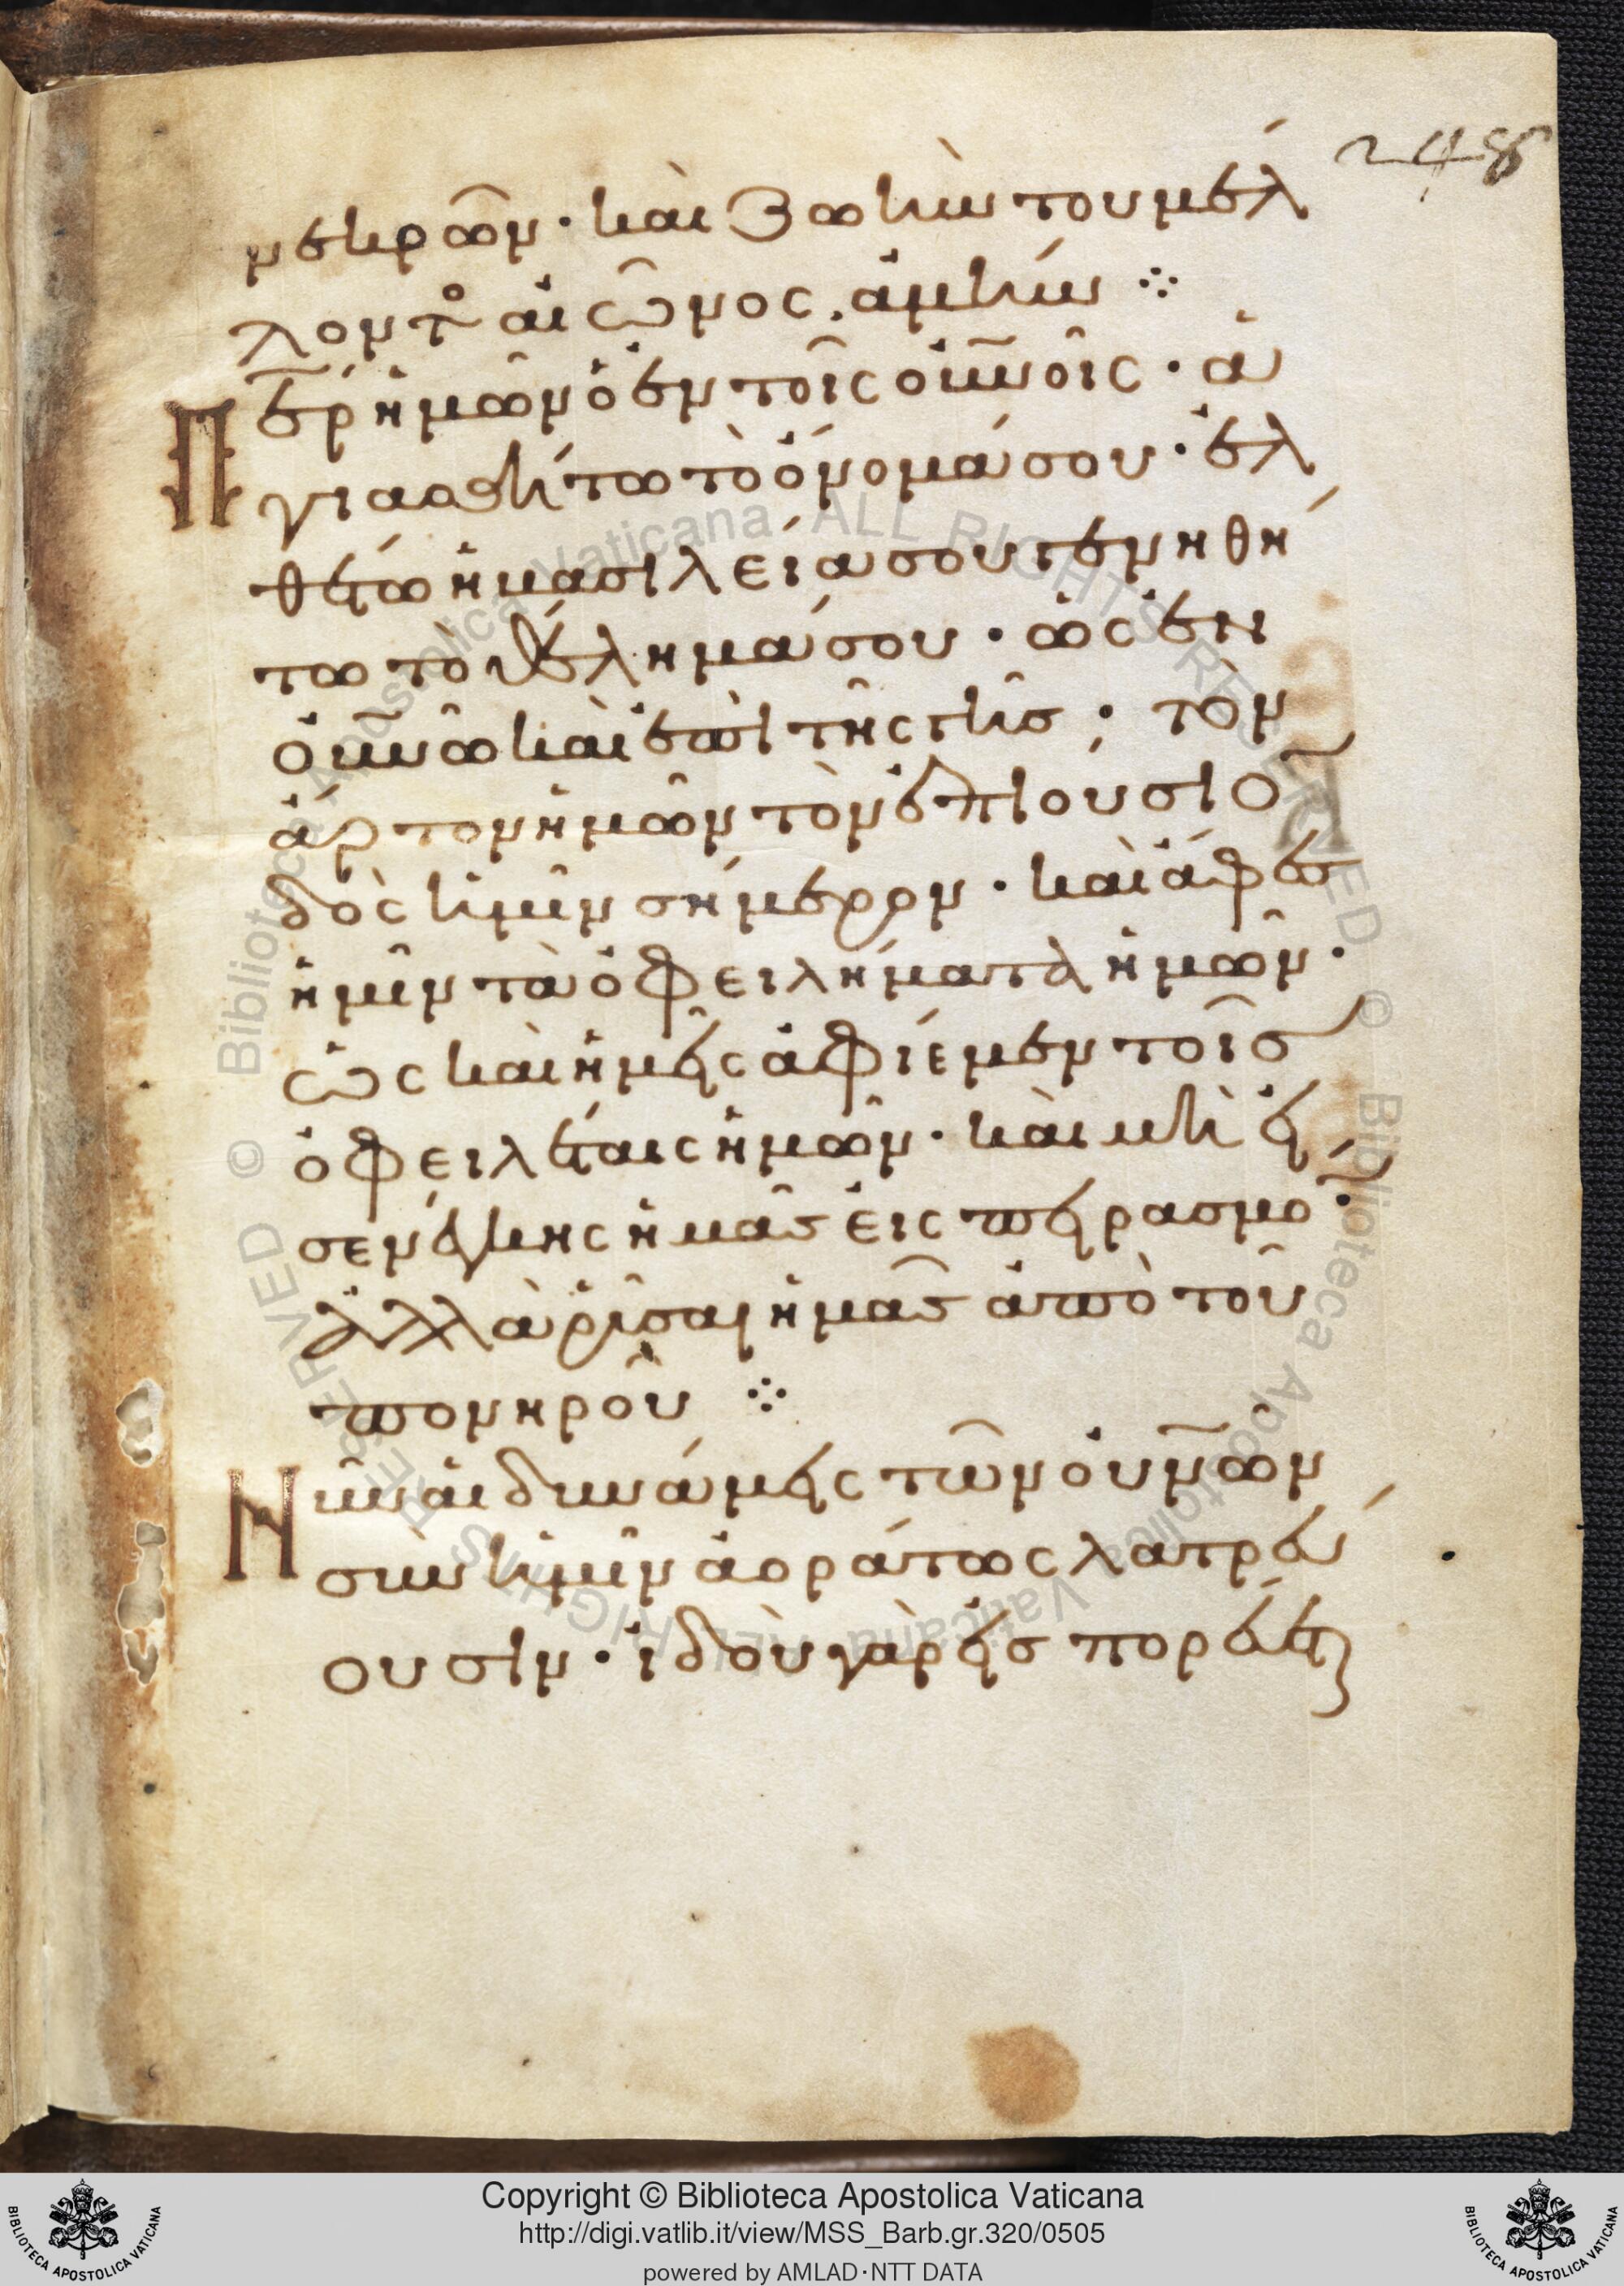 248
νεκρῶν · καὶ ζωὴν τοῦ μέλ
λοντο αἰῶνος . ἀμήν ⁘
Π̅ερ ἡμῶν ὁ ἐν τοῖς οὐν̅οῖς · ἁ
γιασθήτω τὸ ὄνομά σου · ἐλ
θέτω ἡ βασιλεία σου γενηθή
τω τὸ θέλημά σου · ὡς ἐν
οὐν̅ῶ καὶ ἐπὶ τῆς γῆς · τὸν
ἄρτον ἡμῶν τὸν ἐπιούσιο̅
δὸς ἡμῖν σήμερον · καὶ ἄφες
ἡμῖν τὰ ὀφειλήματα ἡμῶν ·
ὡς καὶ ἡμεῖς ἀφίεμεν τοῖς
ὀφειλέταις ἡμῶν · καὶ μὴ εἰ
σενέγκης ἡμᾶς εἰς πειρασμό̅ ·
ἀλλὰ ῥῦσαι ἡμᾶς ἀπὸ τοῦ
πονηροῦ ⁘
Νῦν αἱ δυνάμεις τῶν οὐν̅ῶν
σὺν ἡμῖν ἀοράτως λατρεύ
ουσιν · ἰδοὺ γὰρ εἰσπορεύετ
Copyright © Biblioteca Apostolica Vaticana
http://digi.vatlib.it/view/MSS_Barb.gr.320/0505
powered by AMLAD·NTT DATA
BIBLIOTECA APOSTOLICA VATICANA
BIBLIOTECA APOSTOLICA VATICANA
© Biblioteca Apostolica Vaticana ALL RIGHTS RESERVED © Biblioteca Apostolica Vaticana ALL RIGHTS RESERVED